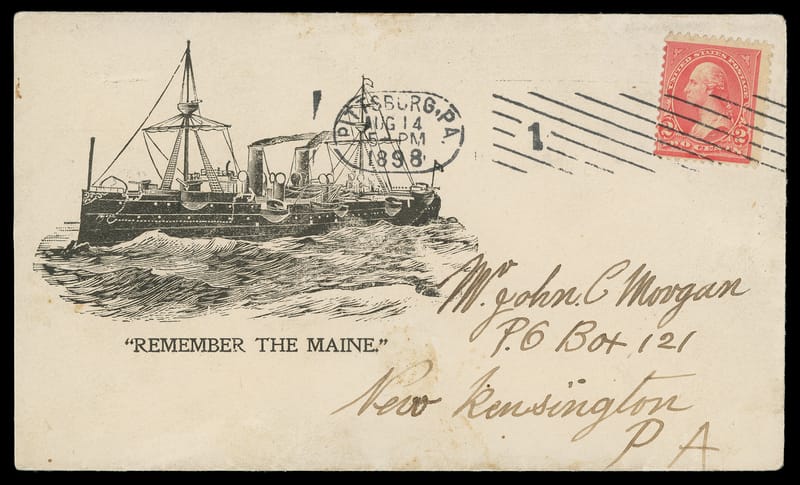 PITTSBURG, PA.
AUG 14
5 - PM
1898
1
UNITED STATES POSTAGE
2 2
TWO CENTS
"REMEMBER THE MAINE."
Mr. John. C Morgan
P.O Box 121
New Kensington
P A